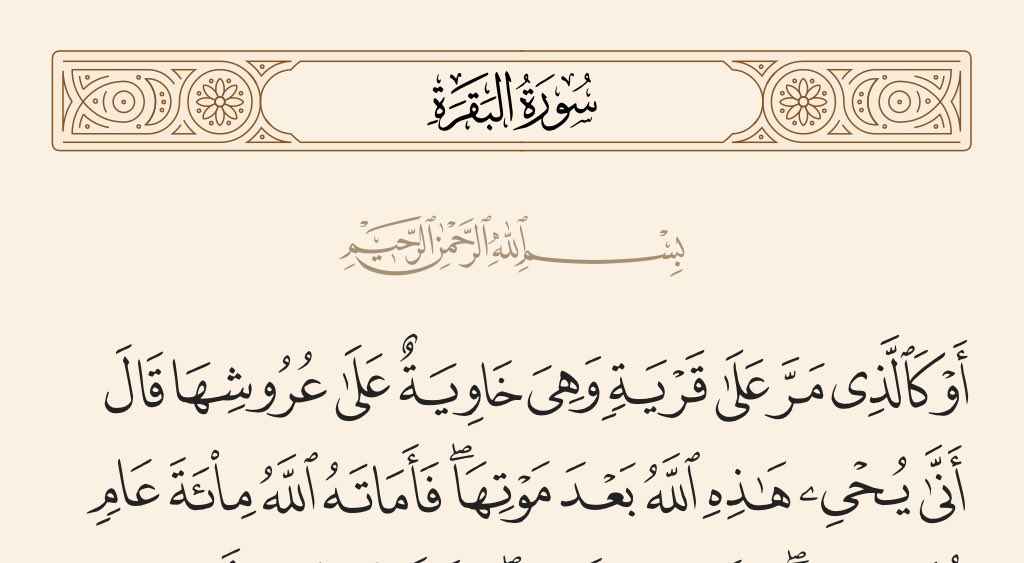 سُورَةُ البَقَرَةِ
بِسْمِ ٱللَّهِ ٱلرَّحْمَٰنِ ٱلرَّحِيمِ
أَوْ كَٱلَّذِى مَرَّ عَلَىٰ قَرْيَةٍ وَهِىَ خَاوِيَةٌ عَلَىٰ عُرُوشِهَا قَالَ
أَنَّىٰ يُحْىِۦ هَٰذِهِ ٱللَّهُ بَعْدَ مَوْتِهَا ۖ فَأَمَاتَهُ ٱللَّهُ مِا۟ئَةَ عَامٍ